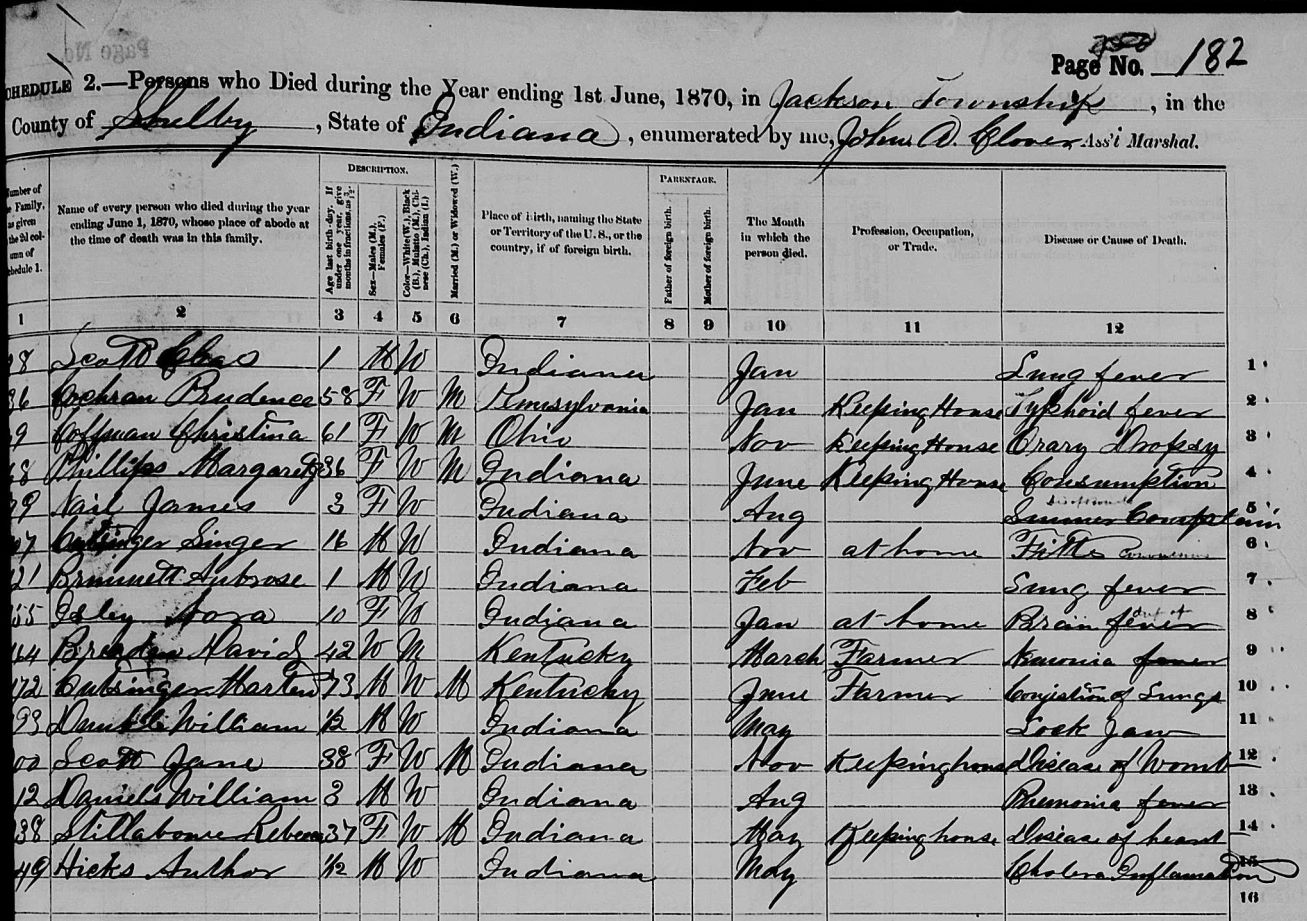 Page No. 182
SCHEDULE 2.—Persons who Died during the Year ending 1st June, 1870, in Jackson Township, in the
County of Shelby, State of Indiana, enumerated by me, John A. Clover Ass't Marshal.
Number of the Family, as given in the 2d column of Schedule 1.
Name of every person who died during the year ending June 1, 1870, whose place of abode at the time of death was in this family.
DESCRIPTION.
Age last birth-day. If under one year, give months in fractions, as 3/12
Sex—Males (M.), Females (F.)
Color—White (W.), Black (B.), Mulatto (M.), Chinese (Ch.), Indian (I.)
Married (M.) or Widowed (W.)
Place of birth, naming the State or Territory of the U. S., or the country, if of foreign birth.
PARENTAGE.
Father of foreign birth.
Mother of foreign birth.
The Month in which the person died.
Profession, Occupation, or Trade.
Disease or Cause of Death.
1 2 3 4 5 6 7 8 9 10 11 12
8 Scott Chas 1 M W Indiana Jan Lung fever 1
36 Cochran Prudence 58 F W M Pennsylvania Jan Keeping House Typhoid fever 2
9 Coffman Christina 61 F W M Ohio Nov Keeping House Dropsy 3
68 Phillips Margaret 36 F W M Indiana June Keeping House Consumption 4
39 Nail James 3 F W Indiana Aug Summer Complain 5
7 Cutsinger Singer 16 M W Indiana Nov at home Fitts 6
21 Brummett Ambrose 1 M W Indiana Feb Lung fever 7
55 Isley Nora 10 F W Indiana Jan at home Brain fever 8
64 David 42 W M Kentucky March Farmer Numonia fever 9
172 Cutsinger Marten 73 M W M Kentucky June Farmer Conjestion of Lungs 10
93 William 1/2 M W Indiana May Lock Jaw 11
00 Scott Jane 38 F W M Indiana Nov Keeping house Disease of Womb 12
12 Daniels William 3 M W Indiana Aug Pnemonia fever 13
38 Stillabower Rebecca 37 F W M Indiana May Keeping house Disease of heart 14
49 Hicks Author 1/12 M W Indiana May Cholera Inflamation 15
16